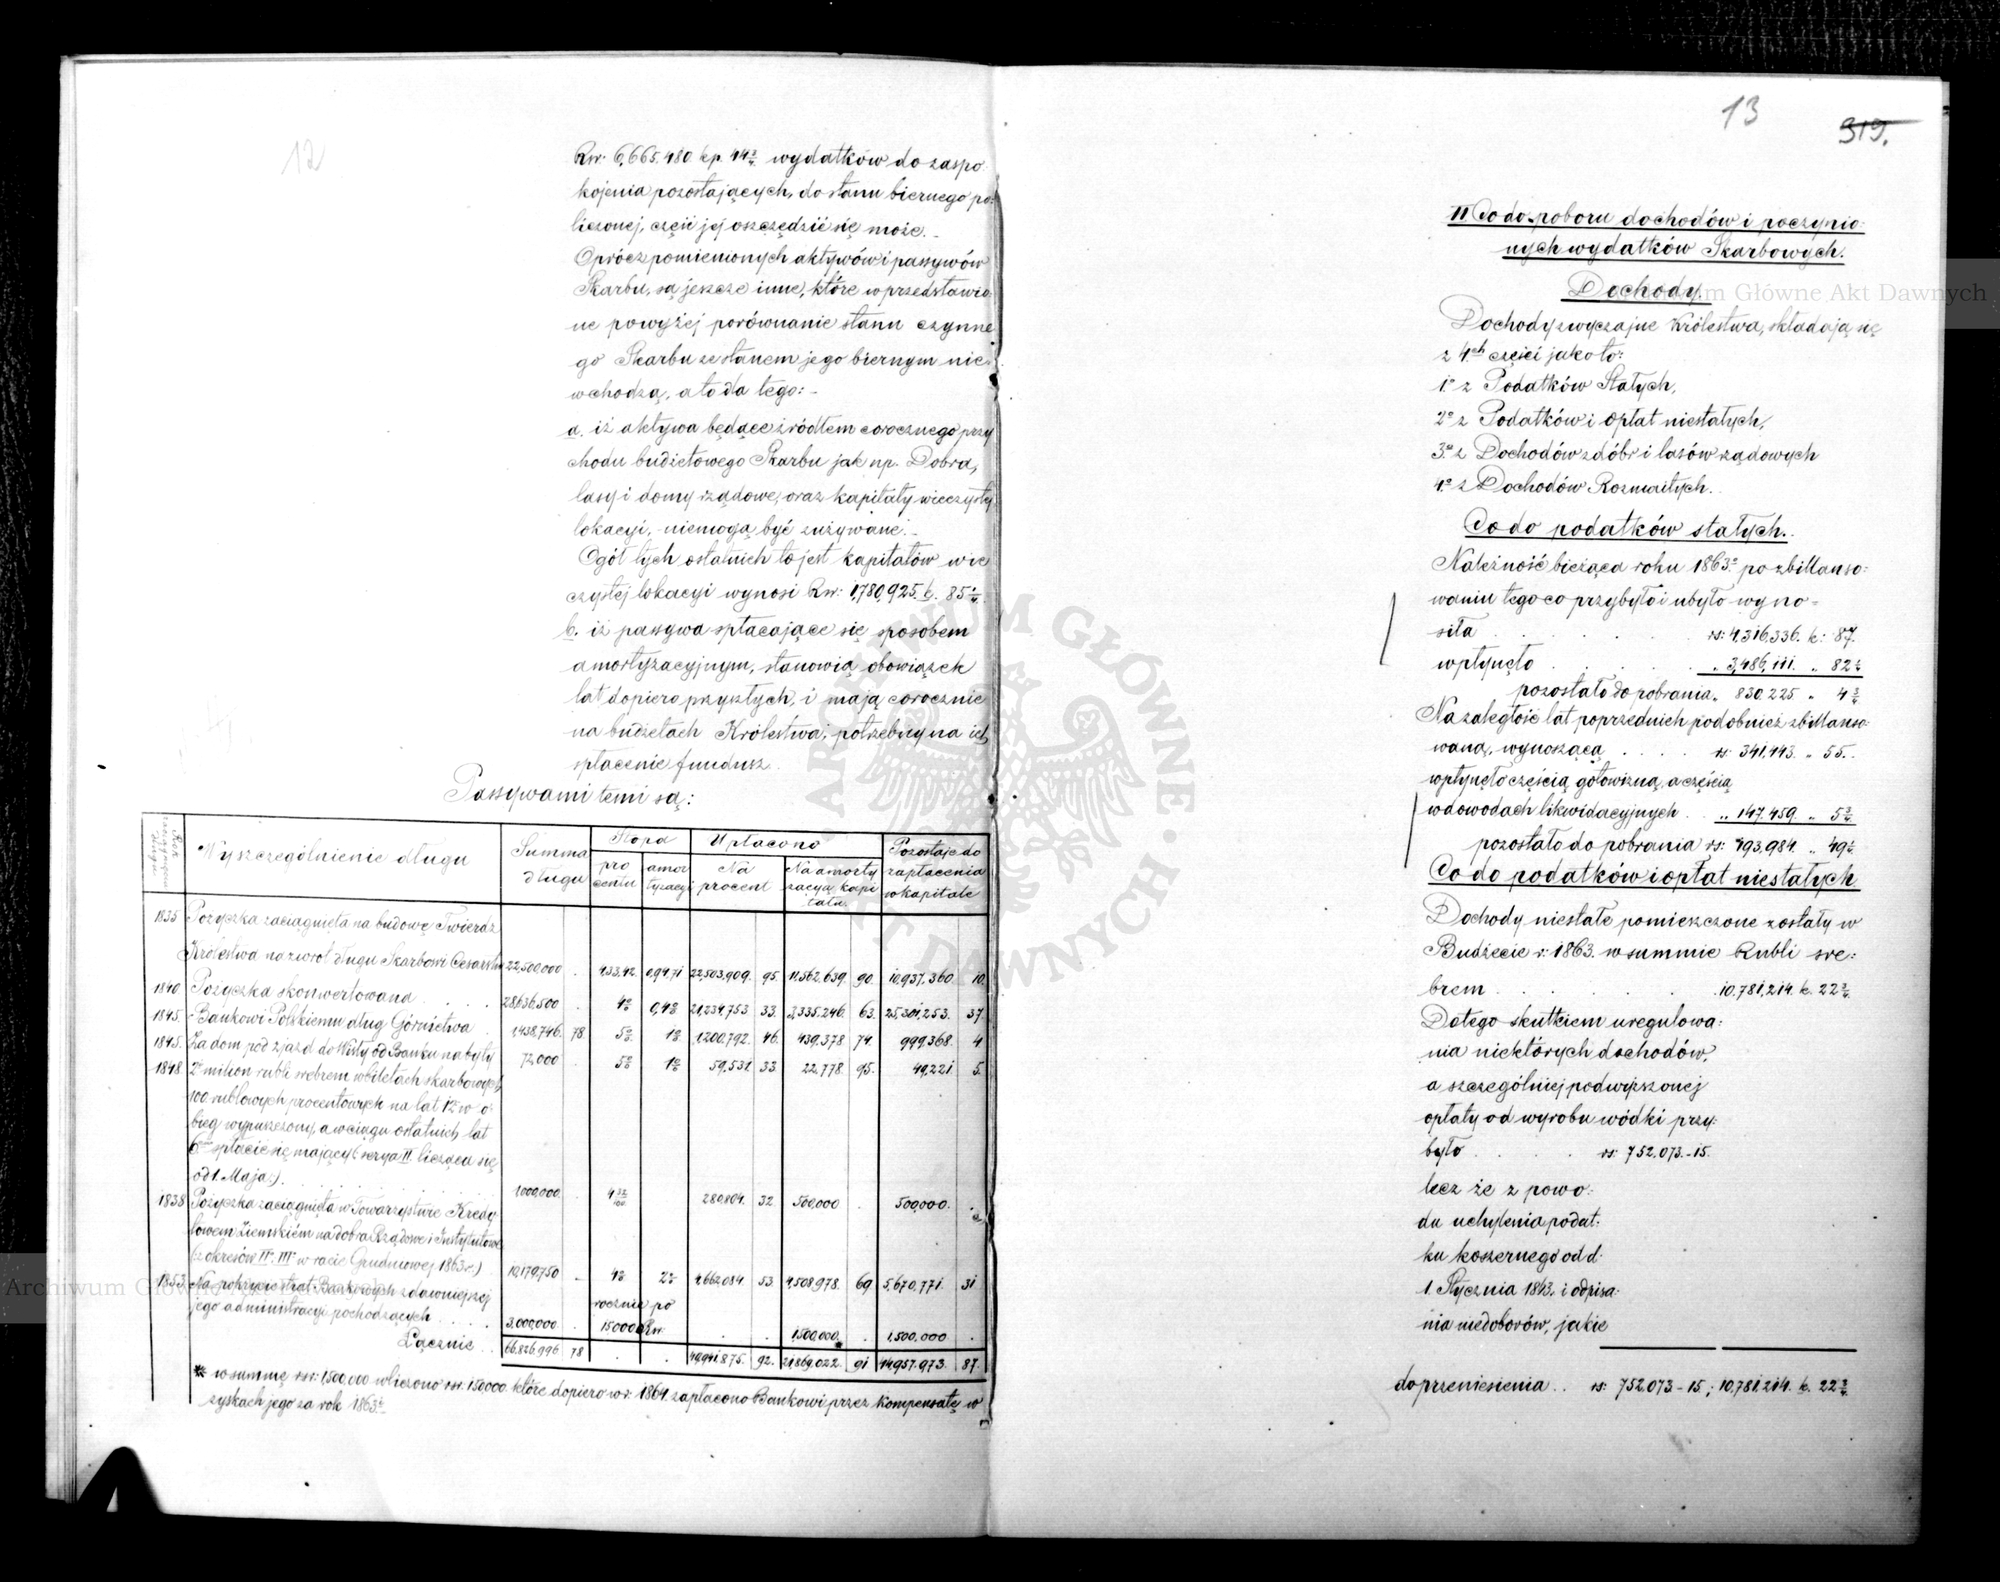 12
Rsr: 6,665,480 kp. 44¾ wydatków do zaspo-
kojenia pozostających, do stanu biernego po-
liczonej, część jej oszczędzić się może. –
Oprócz pomienionych aktywów i passywów
Skarbu, są jeszcze inne, które w przedstawio-
ne powyżej porównanie stanu czynne
go Skarbu ze stanem jego biernym nie-
wchodzą, a to dla tego: –
a. iż aktywa będące źródłem corocznego przy
chodu budżetowego Skarbu jak np. Dobra,
lasy i domy rządowe, oraz kapitały wieczystej
lokacyi, niemogą być zużywane. –
Ogół tych ostatnich to jest kapitałów wie
czystej lokacyi wynosi Rsr: 1,780,925. k. 85¼.
b. iż passywa spłacające się sposobem
amortyzacyjnym, stanowią obowiązek
lat dopiero przyszłych, i mają corocznie
na budżetach Królestwa, potrzebny na ich
spłacenie fundusz.
Passywami temi są:
Wyszczególnienie długu | Summa długu | Stopa procentu | amortyzacyi | Upłacono Na procent | Na amortyzacyą kapitału | Pozostaje do zapłacenia w kapitale
1835 Pożyczka zaciągnięta na budowę Twierdz
Królestwa na zwrot długu Skarbowi Cesarstwa 22,500,000 . 22,503,909. 95. 11,562,639. 90. 10,937,360. 10.
1840 Pożyczka skonwertowana . . . . 28,636,500 . 4% 21,234,753 33. 3,335,246. 63. 25,301,253. 37
1845. Bankowi Polskiemu dług Górnictwa . 1,438,746. 78. 5% 1% 1,200,792. 46. 439,378 74. 999,368. 4
1845. Za dom pod zjazd do Wisły od Banku nabyty 72,000 5% 1% 59,531. 33. 22,778. 95. 49,221 5.
1848 2i milion rubli srebrem w biletach skarbowych
100 rublowych procentowych na lat 12 w o-
bieg wypuszczony, a w ciągu ostatnich lat
6ciu spłacić się mający (serya II. licząca się
od 1. Maja) . . . . 1,000,000. . 4 32/100 280,804. 32 500,000 . 500,000. .
1838 Pożyczka zaciągnięta w Towarzystwie Kredy
towem Ziemskiem na dobra Rządowe i Instytutowe
(z okresów II i III w racie Grudniowej 1863 r.) 10,179,750 – 4% 2% 4,662,084. 53 4,508,978. 69 5,670,771. 31
1853. Na pokrycie strat Bankowych z dawniejszej
jego administracyi pochodzących . . . 3,000,000 . rocznie po 150000 Rsr. . . 1,500,000* . 1,500,000 .
Łącznie . . 66,826,996 78 . . 49,941,875. 92. 21,869,022. 91 44,957,973. 87.
* w summę rsr: 1,500,000 wliczono rsr. 150000 które dopiero w r. 1864 zapłacono Bankowi przez kompensatę w
zyskach jego za rok 1863. –
13
319.
II. Co do poboru dochodów i poczynio-
nych wydatków Skarbowych.
Dochody
Dochody zwyczajne Królestwa, składają się
z 4ch części jako to:
1o z Podatków Stałych,
2o z Podatków i opłat niestałych,
3o z Dochodów z dóbr i lasów rządowych
4o z Dochodów Rozmaitych.
Co do podatków stałych.
Należność bieżąca roku 1863o po zbillanso-
waniu tego co przybyło i ubyło wyno=
siła . . . . rs: 4,316,336. k: 87.
wpłynęło . . . . „ 3,486,111. „ 82¼
pozostało do pobrania „ 830,225 „ 4¾
Na zaległość lat poprzednich podobnież zbillanso-
waną, wynoszącą . . . . rs: 341,443. „ 55.
wpłynęło częścią gotowizną, a częścią
w dowodach likwidacyjnych . . „ 147,459. „ 5¾
pozostało do pobrania rs: 193,984. „ 49¼
Co do podatków i opłat niestałych
Dochody niestałe pomieszczone zostały w
Budżecie r: 1863. w summie Rubli sre-
brem . . . . 10,781,214. k. 22¾
Do tego skutkiem uregulowa-
nia niektórych dochodów,
a szczególniej podwyższonej
opłaty od wyrobu wódki przy-
było . . . . rs: 752,073.–15.
lecz że z powo-
du uchylenia podat-
ku koszernego od d.
1. Stycznia 1863. i odpisa-
nia niedoborów, jakie
do przeniesienia . . rs: 752,073–15; 10,781,214. k. 22¾
Archiwum Główne Akt Dawnych
ARCHIWUM GŁÓWNE AKT DAWNYCH
Archiwum Główne Akt Dawnych